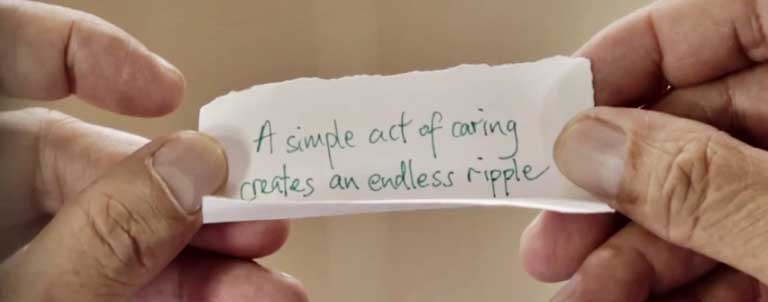 A simple act of caring
creates an endless ripple